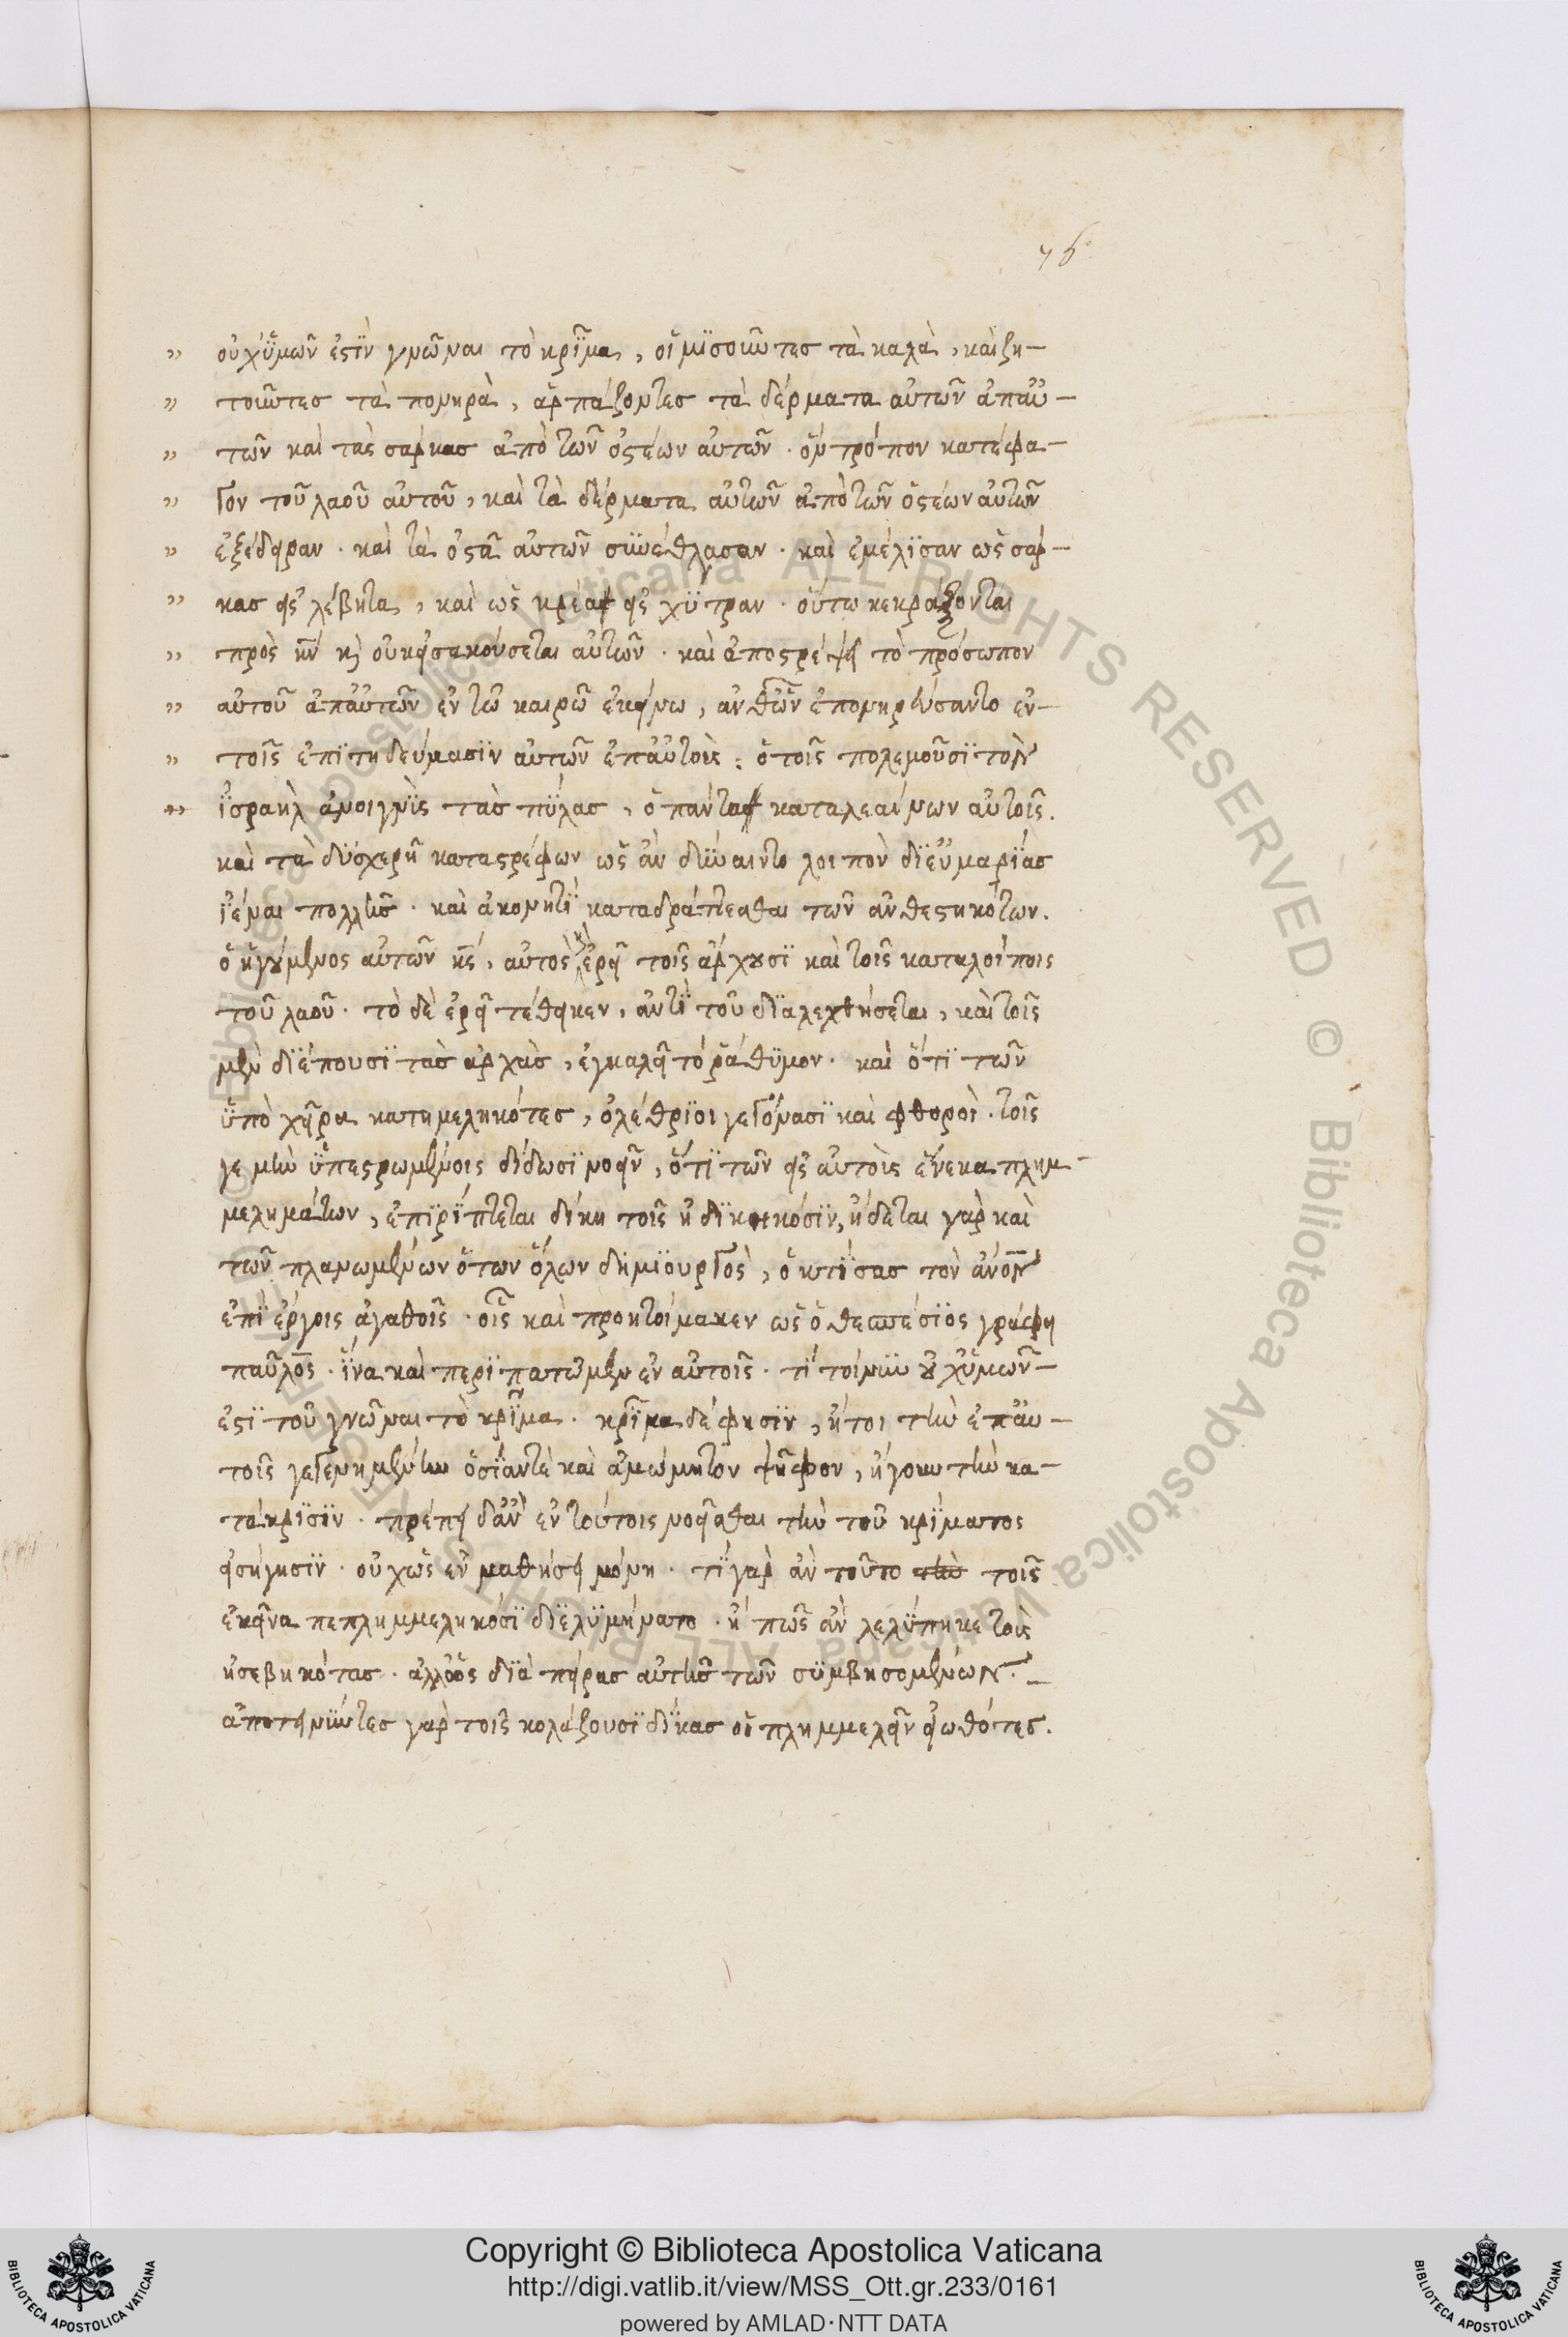 76
" οὐχ ὑμῶν ἐστὶν γνῶναι τὸ κρῖμα, οἱ μισοῦντες τὰ καλὰ, καὶ ζη-
" τοῦντες τὰ πονηρὰ, ἁρπάζοντες τὰ δέρματα αὐτῶν ἀπ' αὐ-
" τῶν καὶ τὰς σάρκας ἀπὸ τῶν ὀστέων αὐτῶν · ὃν τρόπον κατέφα-
" γον τοῦ λαοῦ αὐτοῦ, καὶ τὰ δέρματα αὐτῶν ἀπὸ τῶν ὀστέων αὐτῶν
" ἐξέδειραν · καὶ τὰ ὀστᾶ αὐτῶν συνέθλασαν · καὶ ἐμέλισαν ὡς σάρ-
" κας εἰς λέβητα, καὶ ὡς κρέα εἰς χύτραν · οὕτω κεκράξονται
" πρὸς κν κ οὐκ εἰσακούσεται αὐτῶν · καὶ ἀποστρέψει τὸ πρόσωπον
" αὐτοῦ ἀπ' αὐτῶν ἐν τῶ καιρῶ ἐκείνω, ἀνθ' ὧν ἐπονηρεύσαντο ἐν-
" τοῖς ἐπιτηδεύμασιν αὐτῶν ἐπ' αὐτοὺς : ὁ τοῖς πολεμοῦσι τὸν
" ἰσραὴλ ἀνοιγνὺς τὰς πύλας, ὁ πάντα καταλεαίνων αὐτοῖς.
καὶ τὰ δυσχερῆ καταστρέφων ὡς ἂν δύναιντο λοιπὸν δι' εὐμαρίας
ἰέναι πολλῆς · καὶ ἀκονητὶ καταδράττεσθαι τῶν ἀνθεστηκότων.
ὁ ἡγούμενος αὐτῶν κς, αὐτὸς κ ἐρεῖ τοῖς ἄρχουσι καὶ τοῖς καταλοίποις
τοῦ λαοῦ · τὸ δὲ ἐρεῖ τέθεικεν, ἀντὶ τοῦ διαλεχθήσεται, καὶ τοῖς
μὲν διέπουσι τὰς ἀρχὰς, ἐγκαλεῖ τὸ ῥάθυμον · καὶ ὅτι τῶν
ὑπὸ χεῖρα κατημεληκότες, ὀλέθριοι γεγόνασι καὶ φθοροὶ · τοῖς
γε μὴν ὑπεστρωμένοις δίδωσι νοεῖν, ὅτι τῶν εἰς αὐτοὺς ἕνεκα πλημ-
μελημάτων, ἐπιρίπτεται δίκη τοῖς ἠδικηκόσιν, ἥδεται γὰρ καὶ
τῶν πλανωμένων ὁ τῶν ὅλων δημιουργὸς, ὁ κτίσας τὸν ἄνον
ἐπὶ ἔργοις ἀγαθοῖς · οἷς καὶ προητοίμακεν ὡς ὁ θεσπέσιος γράφει
παῦλος · ἵνα καὶ περιπατῶμεν ἐν αὐτοῖς · τί τοίνυν οὐχ ὑμῶν-
ἐστι τοῦ γνῶναι τὸ κρῖμα · κρῖμα δέ φησιν, ἤτοι τὴν ἐπ' αὐ-
τοῖς γεγενημένην ὁσίαν τὲ καὶ ἀμώμητον ψῆφον, ἤγουν τὴν κα-
τάκρισιν · πρέπει δ' ἂν ἐν τούτοις νοεῖσθαι τὴν τοῦ κρίματος
εἰσήγησιν · οὐχ ὡς ἐν μαθήσει μόνη · τί γὰρ ἂν τοῦτο τοῖς
ἐκεῖνα πεπλημμεληκόσι διελυμήνατο · ἢ πῶς ἂν λελύπηκε τοὺς
ἠσεβηκότας · ἀλλ' ὡς διὰ πείρας αὐτῆς τῶν συμβησομένων. -
ἀποτείνυντες γὰρ τοῖς κολάζουσι δίκας οἱ πλημμελεῖν εἰωθότες.
Copyright © Biblioteca Apostolica Vaticana
http://digi.vatlib.it/view/MSS_Ott.gr.233/0161
powered by AMLAD·NTT DATA